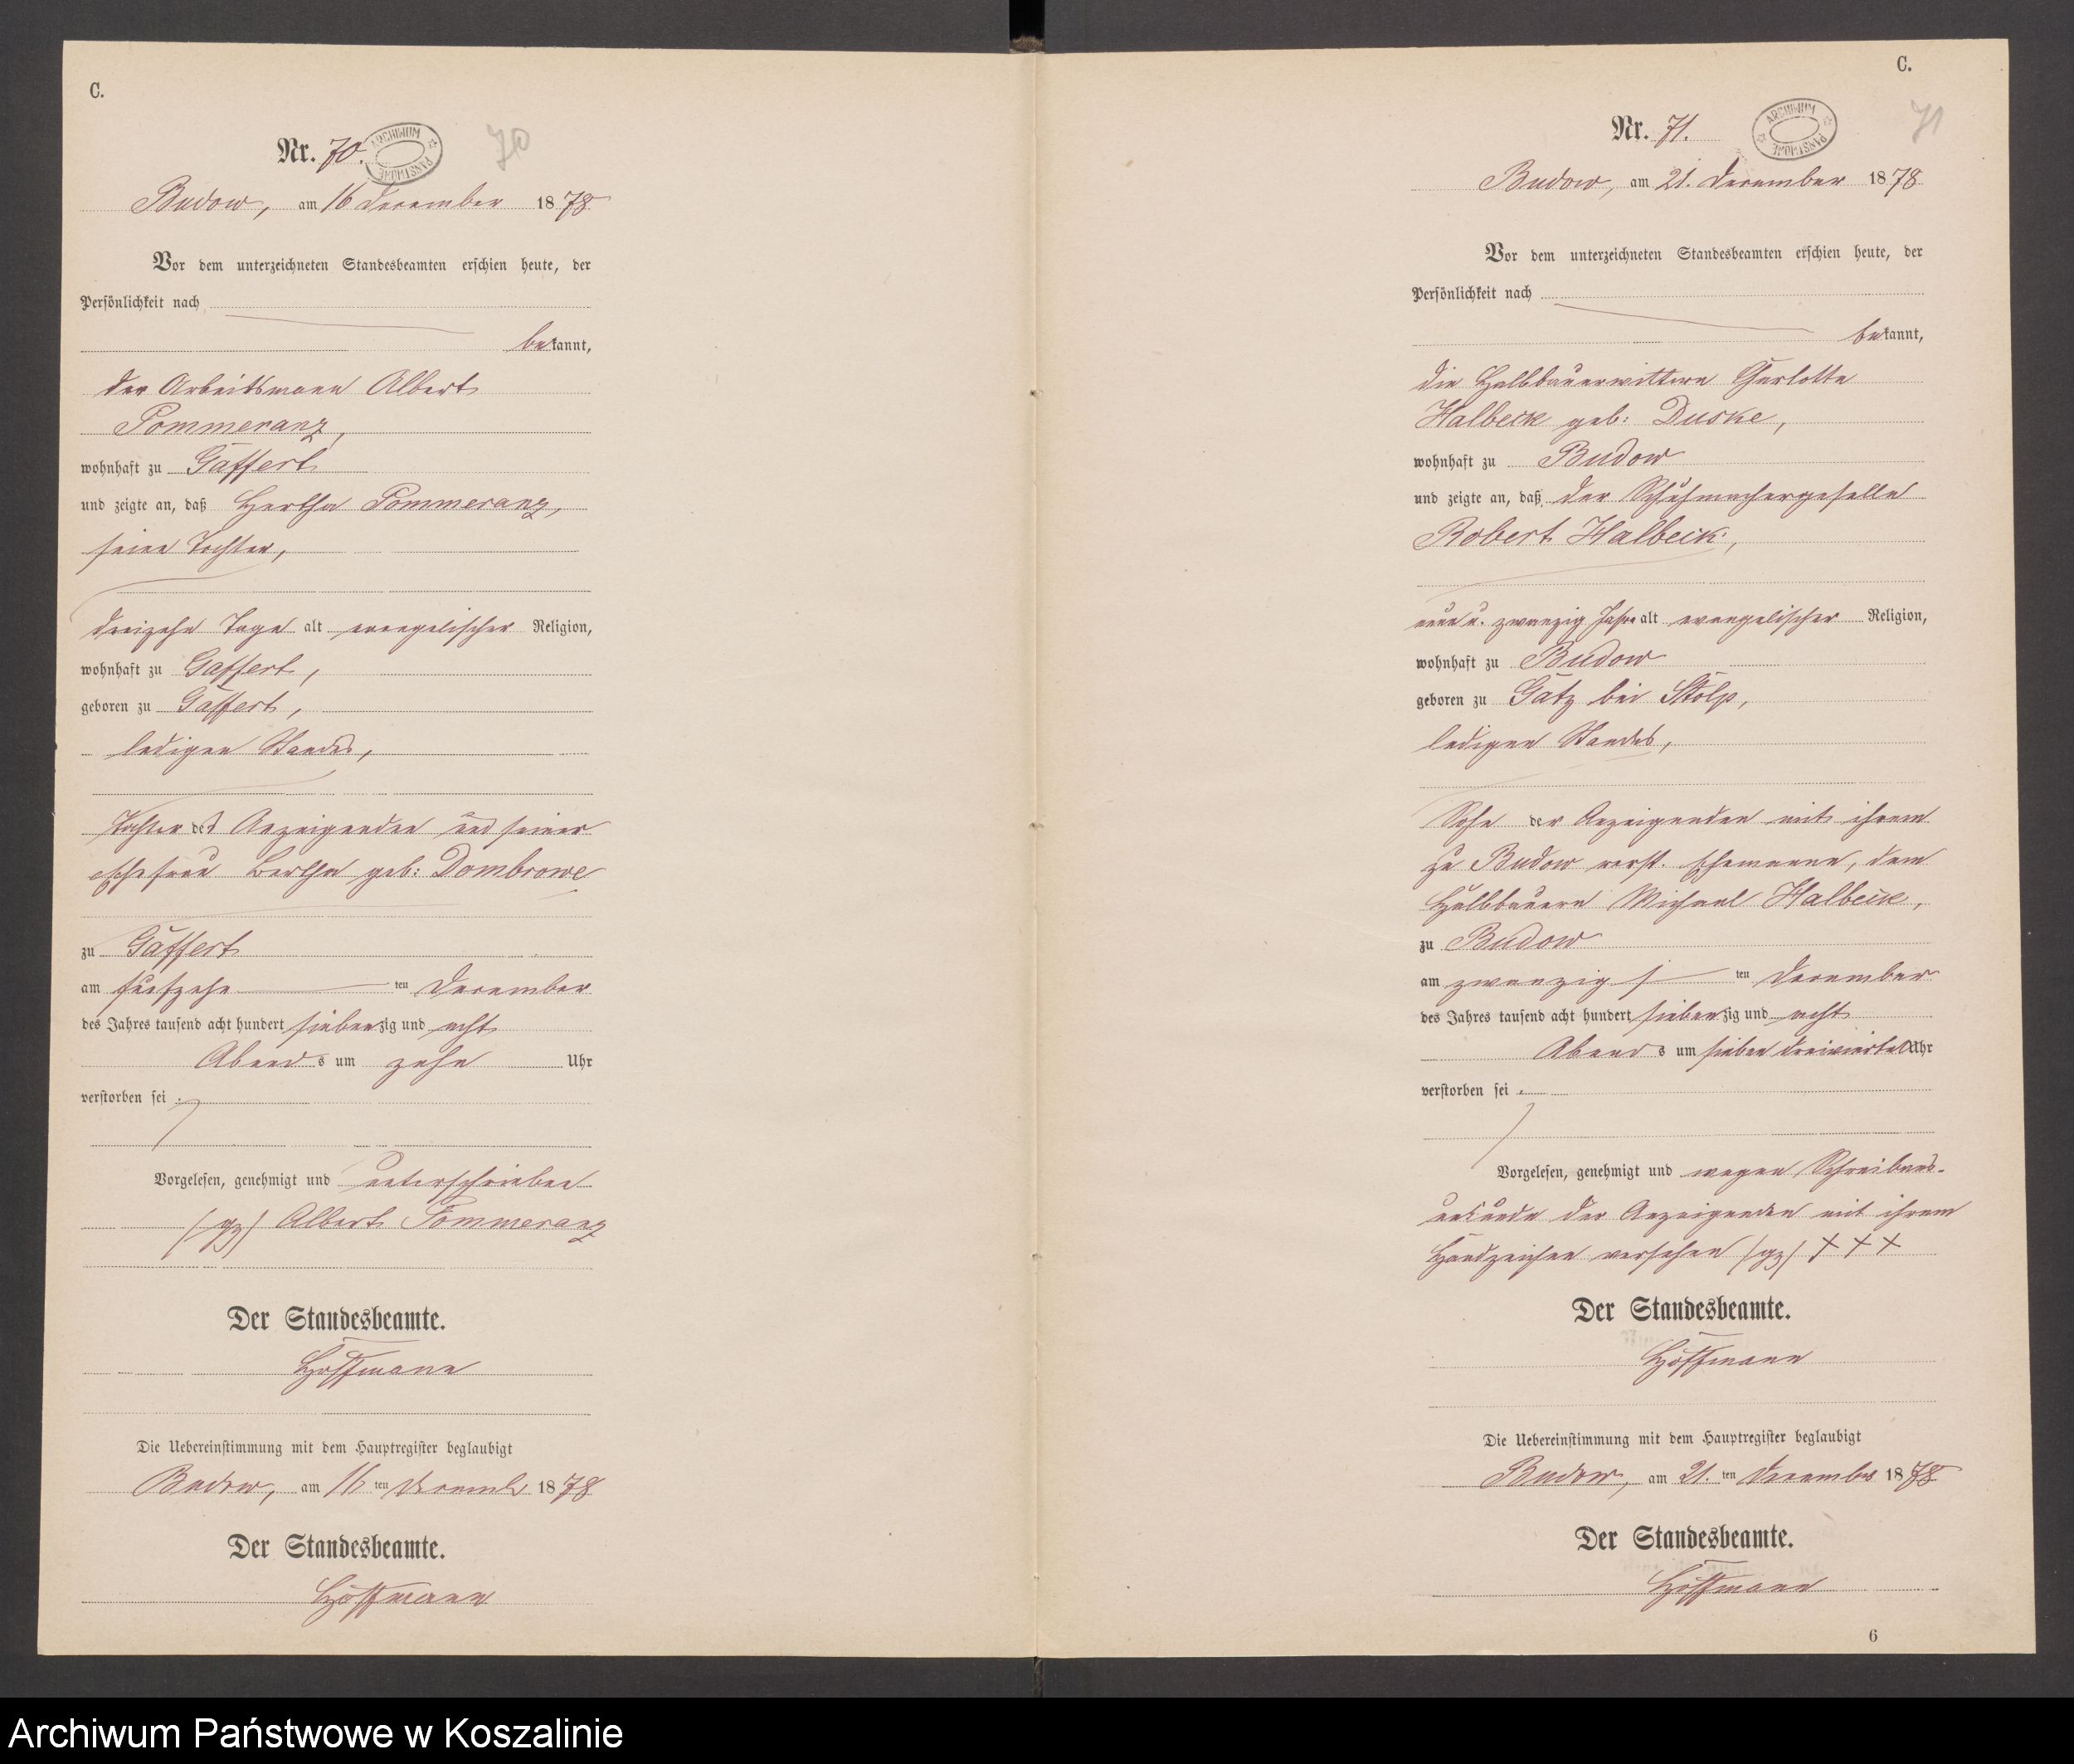 C.
Nr. 70.
70
ARCHIWUM PAŃSTWOWE
Budow, am 16 December 1878
Vor dem unterzeichneten Standesbeamten erschien heute, der
Persönlichkeit nach
bekannt,
der Arbeitsmann Albert
Pommeranz,
wohnhaft zu Gaffert
und zeigte an, daß Hertha Pommeranz,
seine Tochter,
dreizehn Tage alt evangelischer Religion,
wohnhaft zu Gaffert,
geboren zu Gaffert,
ledigen Standes,
Tochter des Anzeigenden und seiner
Ehefrau Bertha geb: Dombrowe
zu Gaffert
am fünfzehnten December
des Jahres tausend acht hundert siebenzig und acht
Abends um zehn Uhr
verstorben sei.
Vorgelesen, genehmigt und unterschrieben
(gz) Albert Pommeranz
Der Standesbeamte.
Hoffmann
Die Uebereinstimmung mit dem Hauptregister beglaubigt
Budow, am 16 ten December 1878
Der Standesbeamte.
Hoffmann
C.
Nr. 71.
71
ARCHIWUM PAŃSTWOWE
Budow, am 21. December 1878
Vor dem unterzeichneten Standesbeamten erschien heute, der
Persönlichkeit nach
bekannt,
die Halbbauerwittwe
Halbeck geb: Duske,
wohnhaft zu Budow
und zeigte an, daß der Schuhmachergeselle
Robert Halbeck,
neun u. zwanzig Jahre alt evangelischer Religion,
wohnhaft zu Budow
geboren zu Gatz bei Stolp,
ledigen Standes,
Sohn der Anzeigenden mit ihrem
zu Budow verst. Ehemanne, dem
Halbbauern Michael Halbeck,
zu Budow
am zwanzigsten December
des Jahres tausend acht hundert siebenzig und acht
Abends um sieben dreiviertel Uhr
verstorben sei.
Vorgelesen, genehmigt und wegen Schreibens-
unkunde der Anzeigenden mit ihrem
Handzeichen versehen (gz) XXX
Der Standesbeamte.
Hoffmann
Die Uebereinstimmung mit dem Hauptregister beglaubigt
Budow, am 21. ten December 1878
Der Standesbeamte.
Hoffmann
6
Archiwum Państwowe w Koszalinie